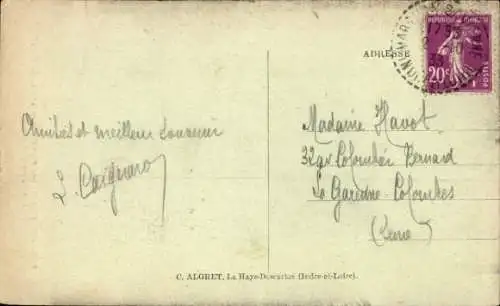 ADRESSE
RÉPUBLIQUE FRANÇAISE
20c
POSTES
Amitiés et meilleur Souvenir
Madame Havot
32 av Colombée Bernard
La Garenne-Colombes
(Seine)
C. ALGRET, La Haye-Descartes (Indre-et-Loire).